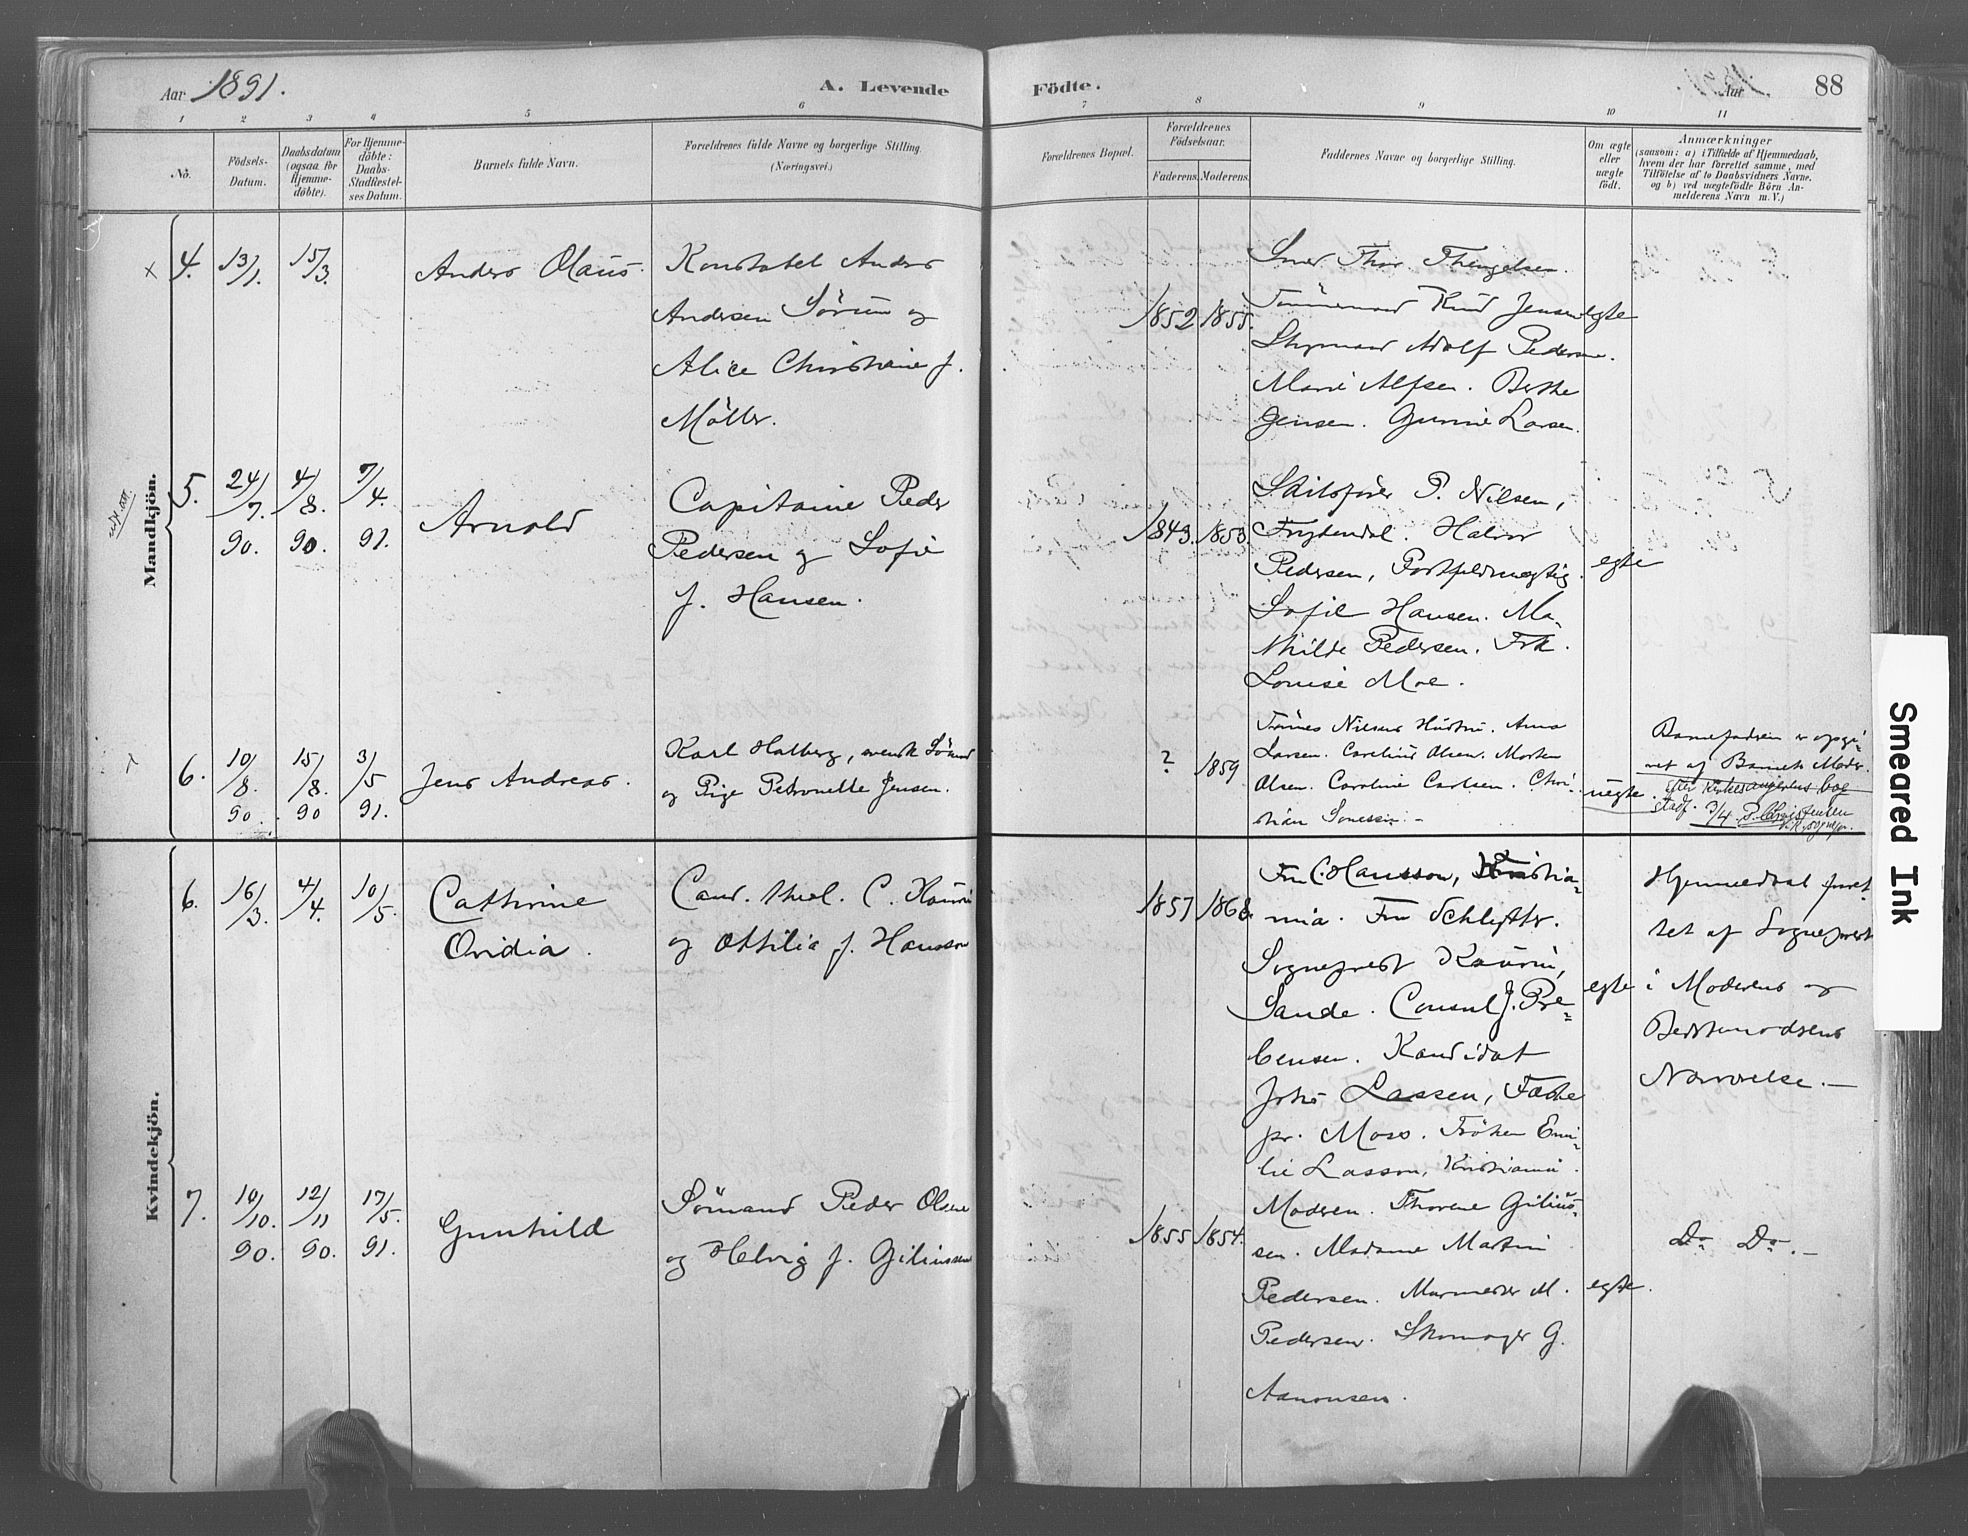 Aar 1891.
A. Levende
Födte.
Aar
88
1 2 3 4 5 6 7 8 9 10 11
No.
Födsels-
Datum.
Daabsdatum
(ogsaa for
Hjemme-
döbte).
For Hjemme-
döbte:
Daabs-
Stadfæstel-
ses Datum.
Barnets fulde Navn.
Forældrenes fulde Navne og borgerlige Stilling.
(Næringsvei.)
Forældrenes Bopæl.
Forældrenes
Födselsaar.
Faderens. Moderens.
Faddernes Navne og borgerlige Stilling.
Om ægte
eller
uægte
födt.
Anmærkninger
(saasom: a) i Tilfælde af Hjemmedaab,
hvem der har forrettet samme, med
Tilföielse af to Daabsvidners Navne.
og b) ved uægtefödte Börn An-
melderens Navn m. V.)
Mandkjön.
4. 13/1. 15/3.
Anders Olaus.
Konstabel Anders
Andersen Sørum og
Alice Christiane f.
Møller.
1852 1855.
Thor Thengelsen.
Tømmermand Knud Jensen
Styrmand Adolf Pedersen.
Marie Alfsen. Berthe
Jensen. Gunnie Larsen.
egte
5. 24/7. 90. 4/8. 90. 7/4. 91.
Arnold
Capitaine Peder
Pedersen og Sofie
f. Hansen.
1843. 1853.
Skibsfører P. Nilsen,
Frydendal. Halvor
Pedersen,
Sofie Hansen. Ma-
thilde Pedersen. Frk.
Louise Moe.
egte
6. 10/8. 90. 15/8. 90 3/5 91.
Jens Andreas.
Karl Halberg, svensk Sømand
og Pige Petronelle Jensen.
? 1859
Tønnes Nilsens Hustru. Anna
Larsen. Carelius Olsen. Morten
Olsen. Caroline Carlsen. Chri-
stian
uegte.
Barnefaderen er opgi-
vet af Barnets Moder.
Kvindekjön.
6. 16/3. 4/4. 10/5.
Cathrine
Ovidia.
Cand. theol. C. Kaurin
og Ottilia f. Hansson
1857 1868.
Fru C. Hansson, Kristia-
nia. Fru Schlytter.
Sogneprest Kaurin,
Sande. Consul J. Pre-
bensen. Kandidat
Johs Lassen,
pr. Moss. Frøken Emi-
lie Lasson, Kristiania.
egte
Hjemmedaab forret-
tet af Sogneprest
i Moderens og
Bedstemoderens
Nærvælse.—
7. 10/10. 90. 12/11 90. 17/5. 91.
Gunhild
Sømand Peder Olsen
og Helvig f. Giliussen
1855 1854.
Moderen. Thorene Gilius-
sen. Madame Martin
Pedersen. Murmester M.
Pedersen. Skomager G.
Aanonsen.
egte.
Do Do.—
Smeared Ink